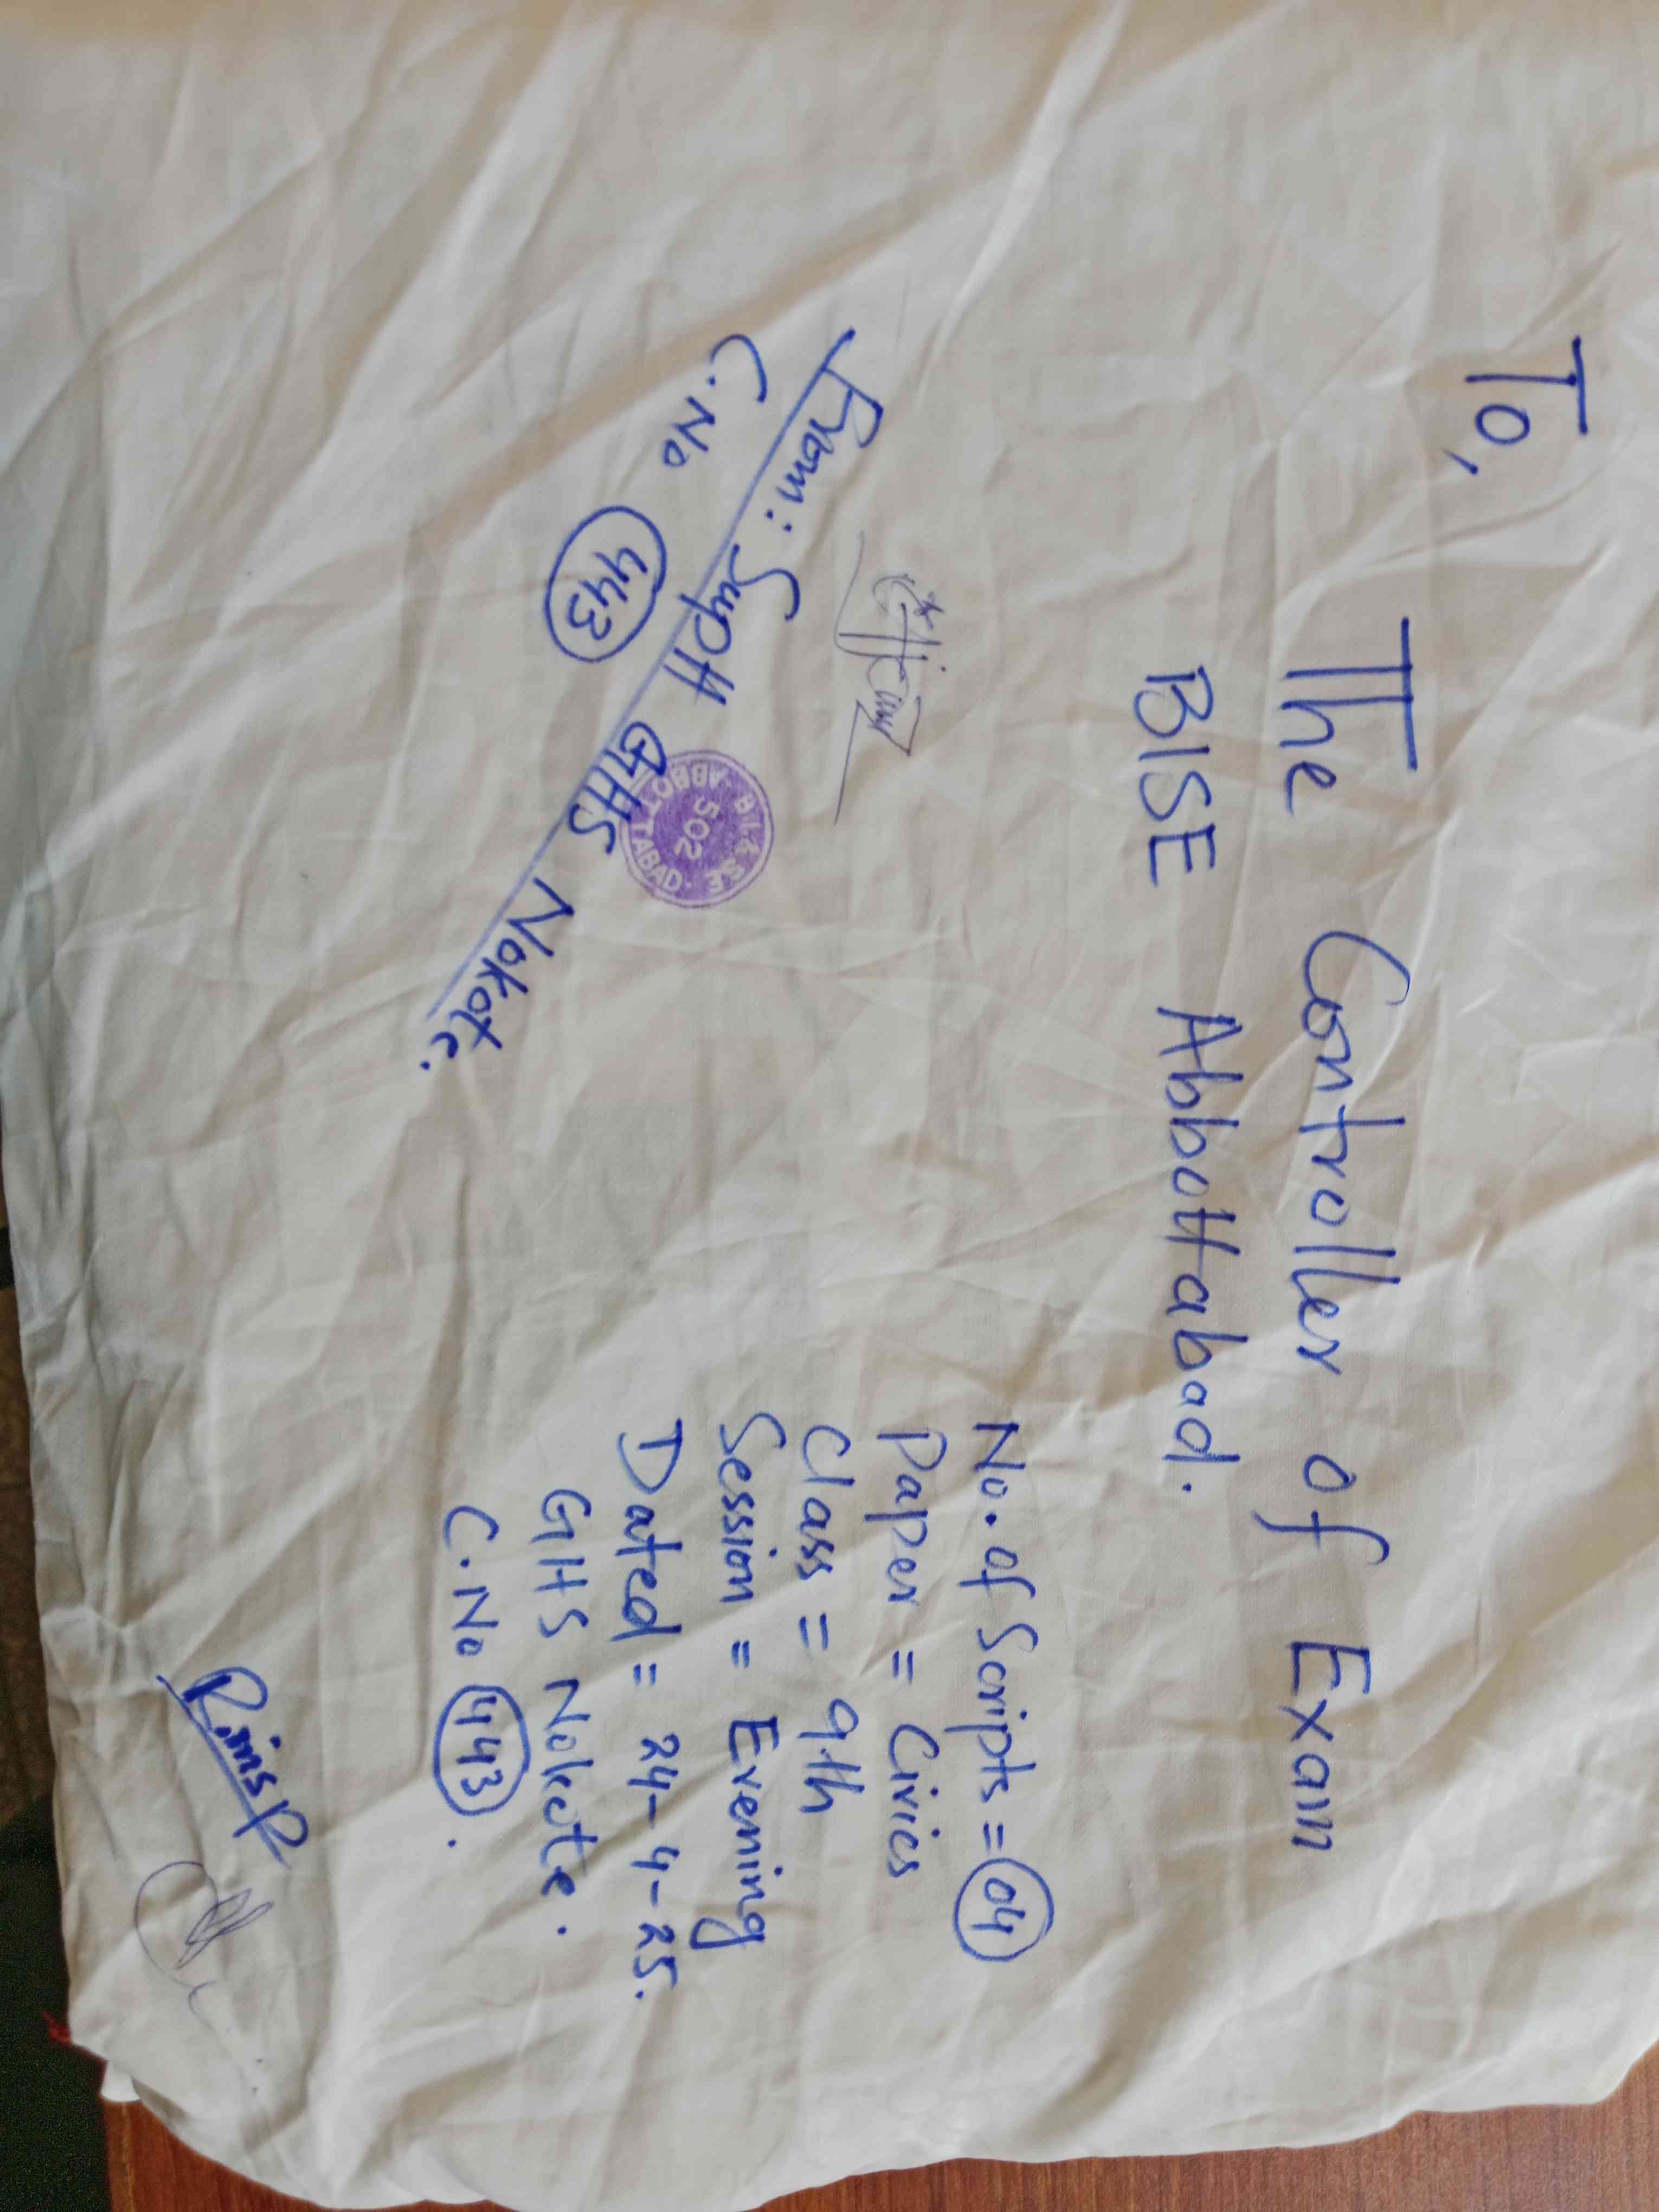 To,
The Controller of Exam
BISE Abbottabad.
No. of Scripts = 04
Paper = Civics
Class = 9th
Session = Evening
Dated = 24-4-25.
GHS Nokote.
C.No 443.
From: Suptt GHS Nokote.
C.No 443
B.I.S.E
502
ABBOTTABAD.